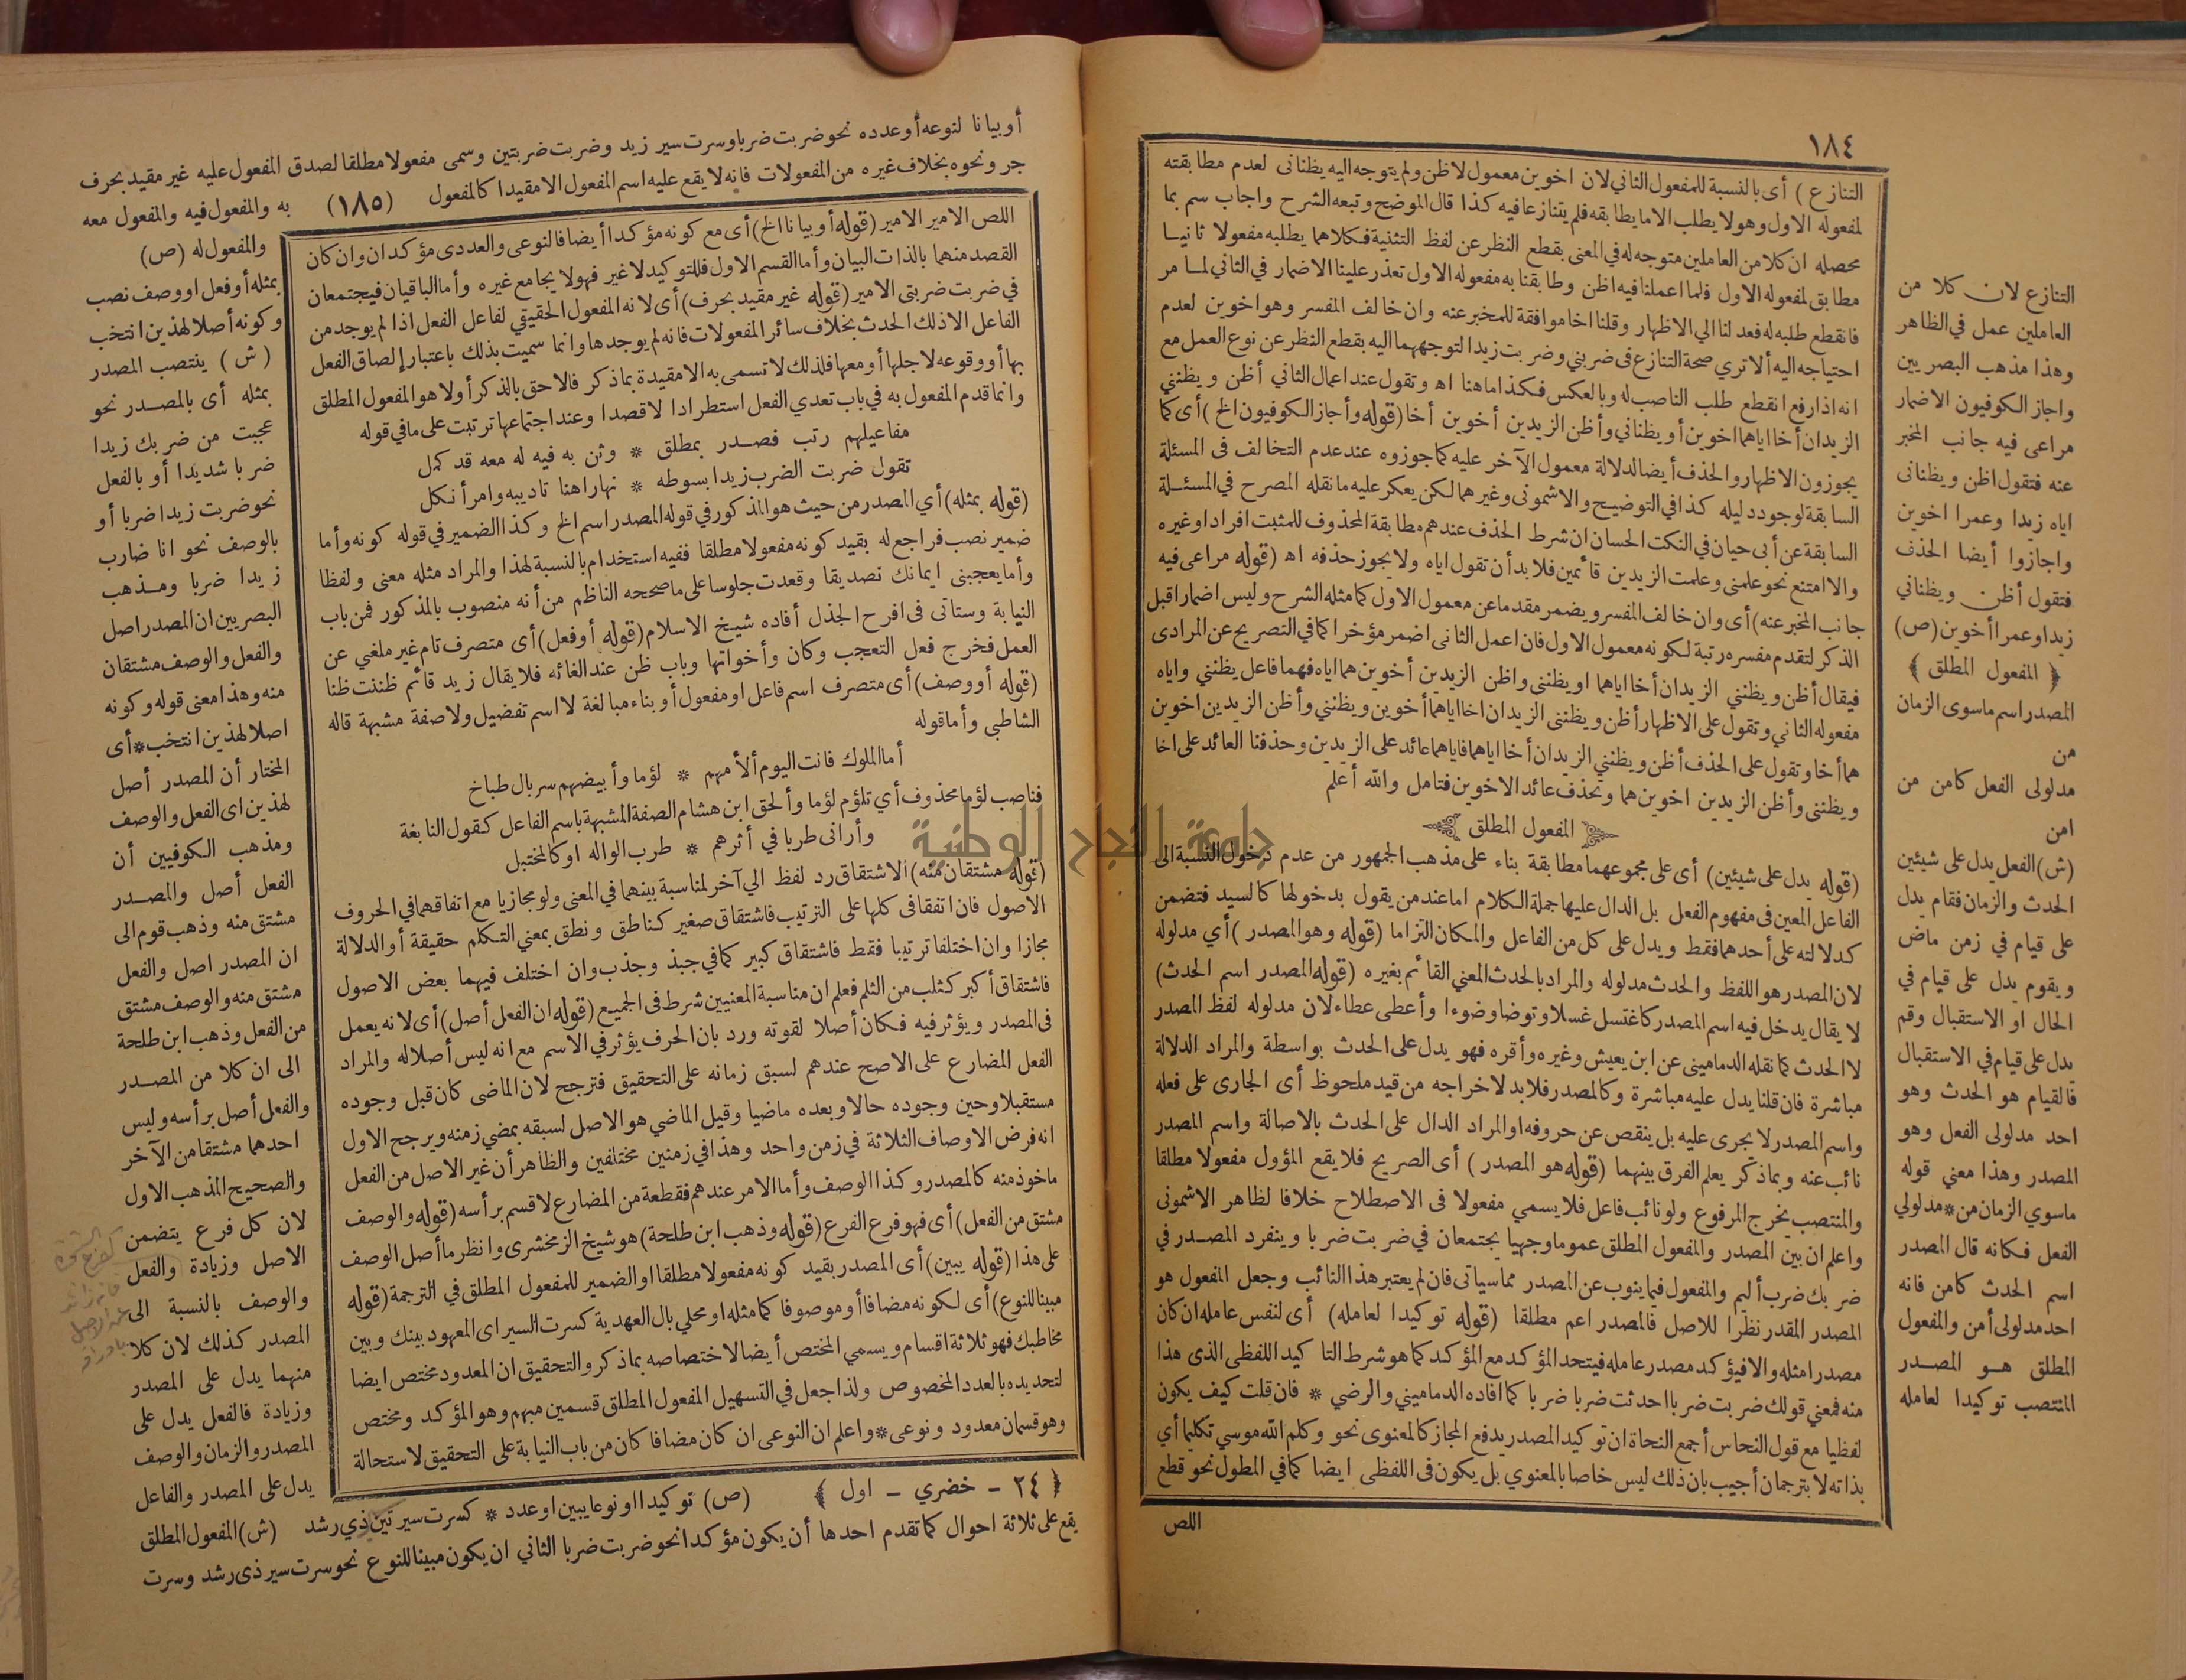 ١٨٤
التنازع ) أى بالنسبة للمفعول الثاني لان اخوين معمول لاظن ولم يتوجه اليه يظنانى لعدم مطابقته
لمفعوله الاول وهو لا يطلب الا ما يطابقه فلم يتنازعا فيه كذا قال الموضح وتبعه الشرح واجاب سم بما
محصله ان كلا من العاملين متوجه له في المعنى بقطع النظر عن لفظ التثنية فكلاهما يطلبه مفعولا ثانيا
مطابق لمفعوله الاول فلما اعملنا فيه اظن وطابقنا به مفعوله الاول تعذر علينا الاضمار في الثاني لما مر
فانقطع طلبه له فعدلنا الى الاظهار وقلنا اخا موافقة للمخبر عنه وان خالف المفسر وهو اخوين لعدم
احتياجه اليه ألا تري صحة التنازع فى ضربني وضربت زيدا لتوجههما اليه بقطع النظر عن نوع العمل مع
انه اذا رفع انقطع طلب الناصب له وبالعكس فكذا ما هنا اه وتقول عند اعمال الثاني أظن ويظنني
الزيدان أخا اياهما اخوين أو يظناني وأظن الزيدين أخوين أخا (قوله وأجاز الكوفيون الخ) أى كما
يجوزون الاظهار والحذف أيضا لدلالة معمول الآخر عليه كما جوزوه عند عدم التخالف فى المسئلة
السابقة لوجود دليله كذا في التوضيح والاشمونى وغيرهما لكن يعكر عليه ما نقله المصرح في المسئلة
السابقة عن أبى حيان في النكت الحسان ان شرط الحذف عندهم مطابقة المحذوف للمثبت افرادا وغيره
والا امتنع نحو علمنى وعلمت الزيدين قائمين فلا بد أن تقول اياه ولا يجوز حذفه اه (قوله مراعى فيه
جانب المخبر عنه) أى وان خالف المفسر ويضمر مقدما عن معمول الاول كما مثله الشرح وليس اضمارا قبل
الذكر لتقدم مفسره رتبة لكونه معمول الاول فان اعمل الثانى اضمر مؤخرا كما في التصريح عن المرادى
فيقال أظن ويظنني الزيدان أخا اياهما او يظننى واظن الزيدين أخوين هما اياه فهما فاعل يظنني واياه
مفعوله الثاني وتقول على الاظهار أظن ويظننى الزيدان اخا اياهما أخوين ويظنني وأظن الزيدين اخوين
هما أخا وتقول على الحذف أظن ويظنني الزيدان أخا اياهما فاياهما عائد على الزيدين وحذفنا العائد على اخا
ويظننى وأظن الزيدين اخوين هما وتحذف عائد الاخوين فتامل والله أعلم
المفعول المطلق
(قوله يدل على شيئين) أى على مجموعهما مطابقة بناء على مذهب الجمهور من عدم دخول النسبة الى
الفاعل المعين فى مفهوم الفعل بل الدال عليها جملة الكلام اما عند من يقول بدخولها كالسيد فتضمن
كدلالته على أحدهما فقط ويدل على كل من الفاعل والمكان التزاما (قوله وهو المصدر) أي مدلوله
لان المصدر هو اللفظ والحدث مدلوله والمراد بالحدث المعني القائم بغيره (قوله المصدر اسم الحدث)
لا يقال يدخل فيه اسم المصدر كاغتسل غسلا وتوضا وضوءا وأعطى عطاء لان مدلوله لفظ المصدر
لا الحدث كما نقله الدمامينى عن ابن يعيش وغيره وأقره فهو يدل على الحدث بواسطة والمراد الدلالة
مباشرة فان قلنا يدل عليه مباشرة وكالمصدر فلا بد لاخراجه من قيد ملحوظ أى الجارى على فعله
واسم المصدر لا يجرى عليه بل ينقص عن حروفه او المراد الدال على الحدث بالاصالة واسم المصدر
نائب عنه وبما ذكر يعلم الفرق بينهما (قوله هو المصدر) أى الصريح فلا يقع المؤول مفعولا مطلقا
والمنتصب يخرج المرفوع ولو نائب فاعل فلا يسمي مفعولا فى الاصطلاح خلافا لظاهر الاشمونى
واعلم ان بين المصدر والمفعول المطلق عموما وجهيا يجتمعان في ضربت ضربا وينفرد المصدر في
ضربك ضرب أليم والمفعول فيما ينوب عن المصدر مما سياتى فان لم يعتبر هذا النائب وجعل المفعول هو
المصدر المقدر نظرا للاصل فالمصدر اعم مطلقا (قوله توكيدا لعامله) أى لنفس عامله ان كان
مصدرا مثله والا فيؤكد مصدر عامله فيتحد المؤكد مع المؤكد كما هو شرط التاكيد اللفظى الذى هذا
منه فمعني قولك ضربت ضربا احدثت ضربا ضربا كما افاده الدماميني والرضي * فان قلت كيف يكون
لفظيا مع قول النحاس أجمع النحاة ان توكيد المصدر يدفع المجاز كالمعنوى نحو وكلم الله موسي تكليما أي
بذاته لا بترجمان أجيب بان ذلك ليس خاصا بالمعنوي بل يكون فى اللفظى ايضا كما في المطول نحو قطع
اللص
التنازع لان كلا من
العاملين عمل في الظاهر
وهذا مذهب البصريين
واجاز الكوفيون الاضمار
مراعى فيه جانب المخبر
عنه فتقول اظن ويظنانى
اياه زيدا وعمرا اخوين
واجازوا أيضا الحذف
فتقول أظن ويظناني
زيدا وعمرا أخوين (ص)
﴿ المفعول المطلق ﴾
المصدر اسم ماسوى الزمان
من
مدلولى الفعل كامن من
امن
(ش) الفعل يدل على شيئين
الحدث والزمان فقام يدل
على قيام في زمن ماض
ويقوم يدل على قيام في
الحال او الاستقبال وقم
يدل على قيام في الاستقبال
فالقيام هو الحدث وهو
احد مدلولى الفعل وهو
المصدر وهذا معني قوله
ماسوي الزمان من * مدلولي
الفعل فكانه قال المصدر
اسم الحدث كامن فانه
احد مدلولى أمن والمفعول
المطلق هو المصدر
المنتصب توكيدا لعامله
أو بيانا لنوعه أو عدده نحو ضربت ضربا وسرت سير زيد وضربت ضربتين وسمى مفعولا مطلقا لصدق المفعول عليه غير مقيد بحرف
جر ونحوه بخلاف غيره من المفعولات فانه لا يقع عليه اسم المفعول الا مقيدا كالمفعول (١٨٥) به والمفعول فيه والمفعول معه
والمفعول له (ص)
بمثله أو فعل او وصف نصب
وكونه أصلا لهذين انتخب
(ش) ينتصب المصدر
بمثله أى بالمصدر نحو
عجبت من ضربك زيدا
ضربا شديدا أو بالفعل
نحو ضربت زيدا ضربا أو
بالوصف نحو انا ضارب
زيدا ضربا ومذهب
البصريين ان المصدر اصل
والفعل والوصف مشتقان
منه وهذا معنى قوله وكونه
اصلا لهذين انتخب * أى
المختار أن المصدر أصل
لهذين اى الفعل والوصف
ومذهب الكوفيين أن
الفعل أصل والمصدر
مشتق منه وذهب قوم الى
ان المصدر اصل والفعل
مشتق منه والوصف مشتق
من الفعل وذهب ابن طلحة
الى ان كلا من المصدر
والفعل أصل برأسه وليس
احدهما مشتقا من الآخر
والصحيح المذهب الاول
لان كل فرع يتضمن
الاصل وزيادة والفعل
والوصف بالنسبة الى
المصدر كذلك لان كلا
منهما يدل على المصدر
وزيادة فالفعل يدل على
المصدر والزمان والوصف
يدل على المصدر والفاعل
اللص الامير الامير (قوله أو بيانا الخ) أى مع كونه مؤكدا أيضا فالنوعى والعددى مؤكدان وان كان
القصد منهما بالذات البيان وأما القسم الاول فللتوكيد لا غير فهو لا يجامع غيره وأما الباقيان فيجتمعان
في ضربت ضربتى الامير (قوله غير مقيد بحرف) أى لانه المفعول الحقيقي لفاعل الفعل اذا لم يوجد من
الفاعل الا ذلك الحدث بخلاف سائر المفعولات فانه لم يوجدها وانما سميت بذلك باعتبار إلصاق الفعل
بها أو وقوعه لاجلها أو معها فلذلك لا تسمى به الا مقيدة بما ذكر فالاحق بالذكر أولا هو المفعول المطلق
وانما قدم المفعول به في باب تعدي الفعل استطرادا لا قصدا وعند اجتماعها ترتبت على ما في قوله
مفاعيلهم رتب فصدر بمطلق * وثن به فيه له معه قد كمل
تقول ضربت الضرب زيدا بسوطه * نهارا هنا تاديبه وامرأ نكل
(قوله بمثله) أي المصدر من حيث هو المذكور في قوله المصدر اسم الخ وكذا الضمير في قوله كونه وأما
ضمير نصب فراجع له بقيد كونه مفعولا مطلقا ففيه استخدام بالنسبة لهذا والمراد مثله معنى ولفظا
وأما يعجبنى ايمانك تصديقا وقعدت جلوسا على ما صححه الناظم من أنه منصوب بالمذكور فمن باب
النيابة وستاتى فى افرح الجذل أفاده شيخ الاسلام (قوله أو فعل) أى متصرف تام غير ملغي عن
العمل فخرج فعل التعجب وكان وأخواتها وباب ظن عند الغائه فلا يقال زيد قائم ظننت ظنا
(قوله أو وصف) أى متصرف اسم فاعل او مفعول أو بناء مبالغة لا اسم تفضيل ولا صفة مشبهة قاله
الشاطبي وأما قوله
أما الملوك فانت اليوم ألأمهم * لؤما وأبيضهم سربال طباخ
فناصب لؤما محذوف أي تلؤم لؤما وألحق ابن هشام الصفة المشبهة باسم الفاعل كقول النابغة
وأرانى طربا في أثرهم * طرب الواله او كالمختبل
(قوله مشتقان منه) الاشتقاق رد لفظ الي آخر لمناسبة بينهما في المعنى ولو مجازيا مع اتفاقهما في الحروف
الاصول فان اتفقا فى كلها على الترتيب فاشتقاق صغير كناطق ونطق بمعني التكلم حقيقة أو الدلالة
مجازا وان اختلفا ترتيبا فقط فاشتقاق كبير كما في جبذ وجذب وان اختلف فيهما بعض الاصول
فاشتقاق أكبر كثلب من الثلم فعلم ان مناسبة المعنيين شرط فى الجميع (قوله ان الفعل أصل) أى لانه يعمل
فى المصدر ويؤثر فيه فكان أصلا لقوته ورد بان الحرف يؤثر في الاسم مع انه ليس أصلا له والمراد
الفعل المضارع على الاصح عندهم لسبق زمانه على التحقيق فترجح لان الماضى كان قبل وجوده
مستقبلا وحين وجوده حالا وبعده ماضيا وقيل الماضي هو الاصل لسبقه بمضي زمنه ويرجح الاول
انه فرض الاوصاف الثلاثة في زمن واحد وهذا في زمنين مختلفين والظاهر أن غير الاصل من الفعل
ماخوذ منه كالمصدر وكذا الوصف وأما الامر عندهم فقطعة من المضارع لا قسم برأسه (قوله والوصف
مشتق من الفعل) أى فهو فرع الفرع (قوله وذهب ابن طلحة) هو شيخ الزمخشرى وانظر ما أصل الوصف
على هذا (قوله يبين) أى المصدر بقيد كونه مفعولا مطلقا او الضمير للمفعول المطلق في الترجمة (قوله
مبينا للنوع) أى لكونه مضافا أو موصوفا كما مثله او محلي بال العهدية كسرت السير اى المعهود بينك وبين
مخاطبك فهو ثلاثة اقسام ويسمي المختص أيضا لاختصاصه بما ذكر والتحقيق ان المعدود مختص ايضا
لتحديده بالعدد المخصوص ولذا جعل في التسهيل المفعول المطلق قسمين مبهم وهو المؤكد ومختص
وهو قسمان معدود ونوعى * واعلم ان النوعى ان كان مضافا كان من باب النيابة على التحقيق لاستحالة
﴿ ٢٤ - خضري - اول ﴾ (ص) توكيدا او نوعا يبين او عدد * كسرت سيرتين ذي رشد (ش) المفعول المطلق
يقع على ثلاثة احوال كما تقدم احدها أن يكون مؤكدا نحو ضربت ضربا الثاني ان يكون مبينا للنوع نحو سرت سير ذى رشد وسرت
جامعة النجاح الوطنية